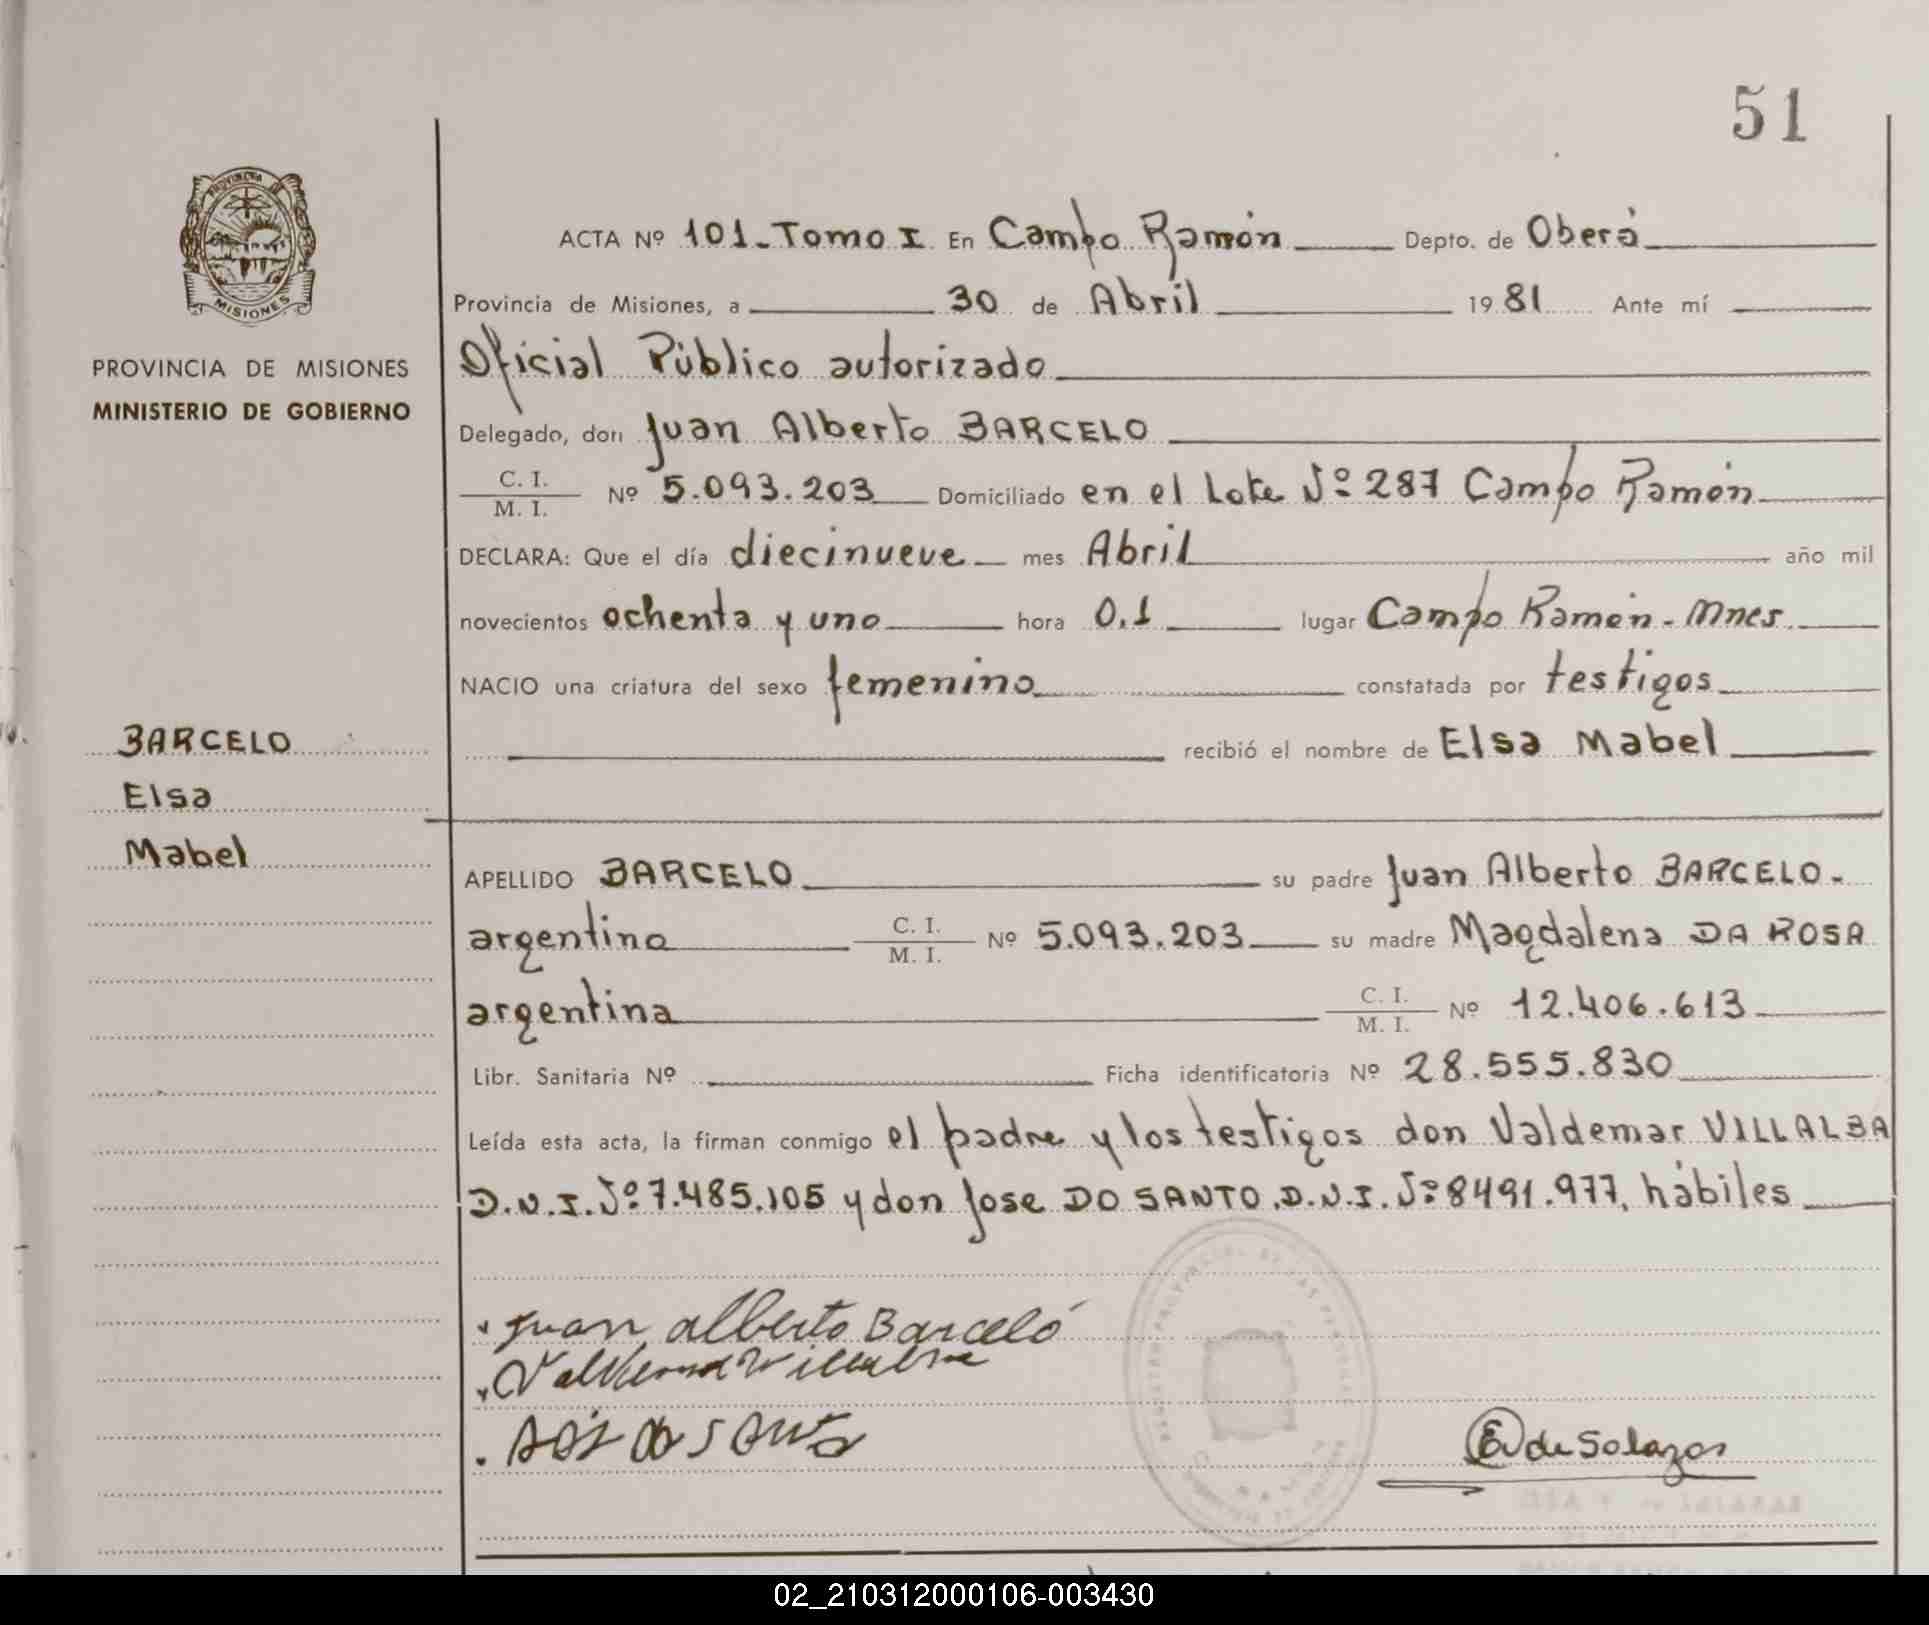 51
PROVINCIA DE MISIONES
MINISTERIO DE GOBIERNO
BARCELO
Elsa
Mabel
ACTA Nº 101-Tomo I En Campo Ramón Depto. de Oberá
Provincia de Misiones, a 30 de Abril 1981 Ante mí
Oficial Público autorizado
Delegado, don Juan Alberto BARCELO
C. I.
M. I. Nº 5.093.203 Domiciliado en el Lote Nº 287 Campo Ramón
DECLARA: Que el día diecinueve mes Abril año mil
novecientos ochenta y uno hora 0,1 lugar Campo Ramón - Mnes.
NACIO una criatura del sexo femenino constatada por testigos
recibió el nombre de Elsa Mabel
APELLIDO BARCELO su padre Juan Alberto BARCELO.
argentino C. I. M. I. Nº 5.093.203 su madre Magdalena DA ROSA
argentina C. I. M. I. Nº 12.406.613
Libr. Sanitaria Nº Ficha identificatoria Nº 28.555.830
Leída esta acta, la firman conmigo el padre y los testigos don Valdemar VILLALBA
D.N.I. Nº 7.485.105 y don Jose DO SANTO, D.N.I. Nº 8491.977, hábiles
Juan Alberto Barceló
E de Solazos
02_210312000106-003430